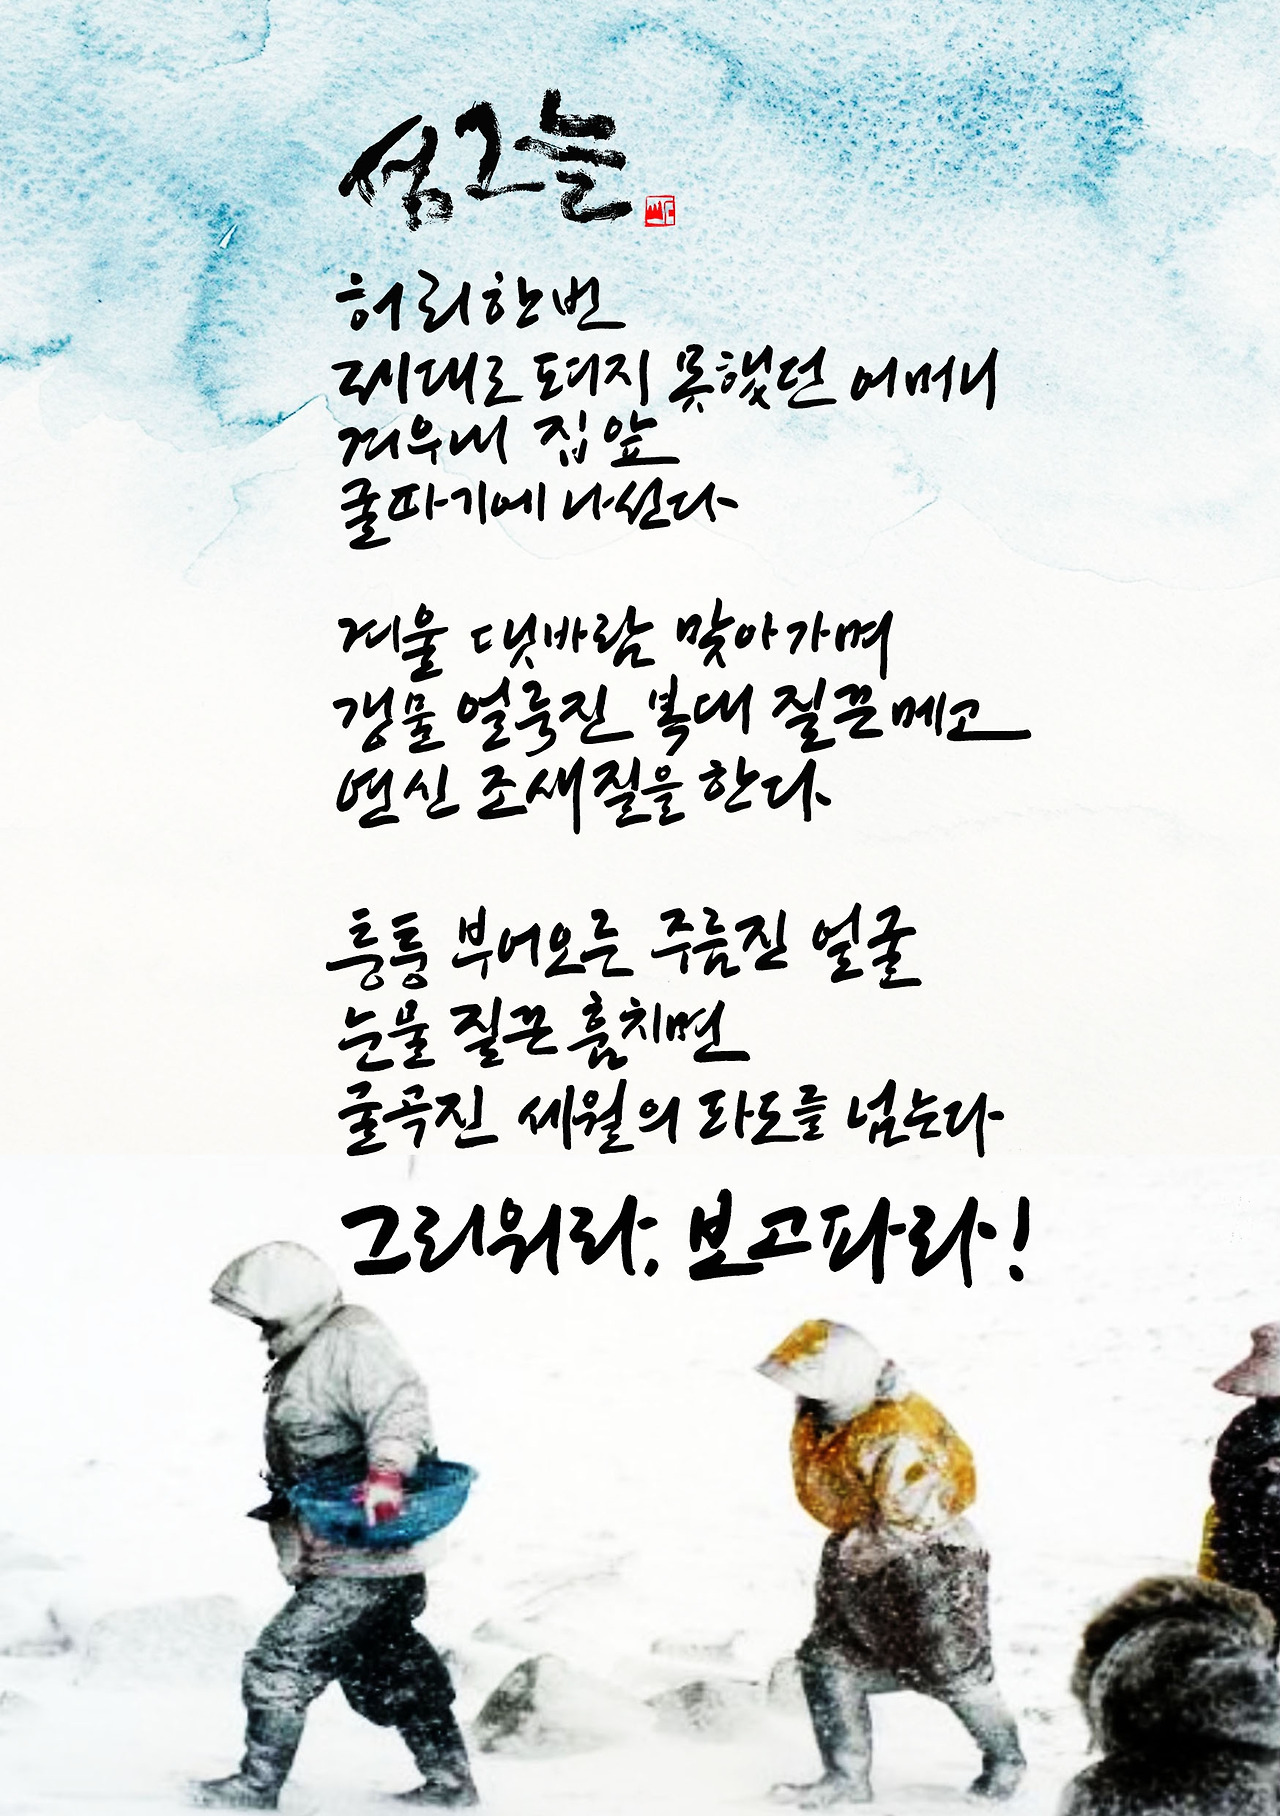 섬그늘
허리한번
제대로 펴지 못했던 어머니
겨우내 집앞
굴파기에 나선다
겨울 댓바람 맞아가며
갱물 얼룩진 복대 질끈메고
연신 조새질을 한다.
퉁퉁 부어오른 주름진 얼굴
눈물 질끈 훔치면
굴곡진 세월의 파도를 넘는다
그리워라, 보고파라!